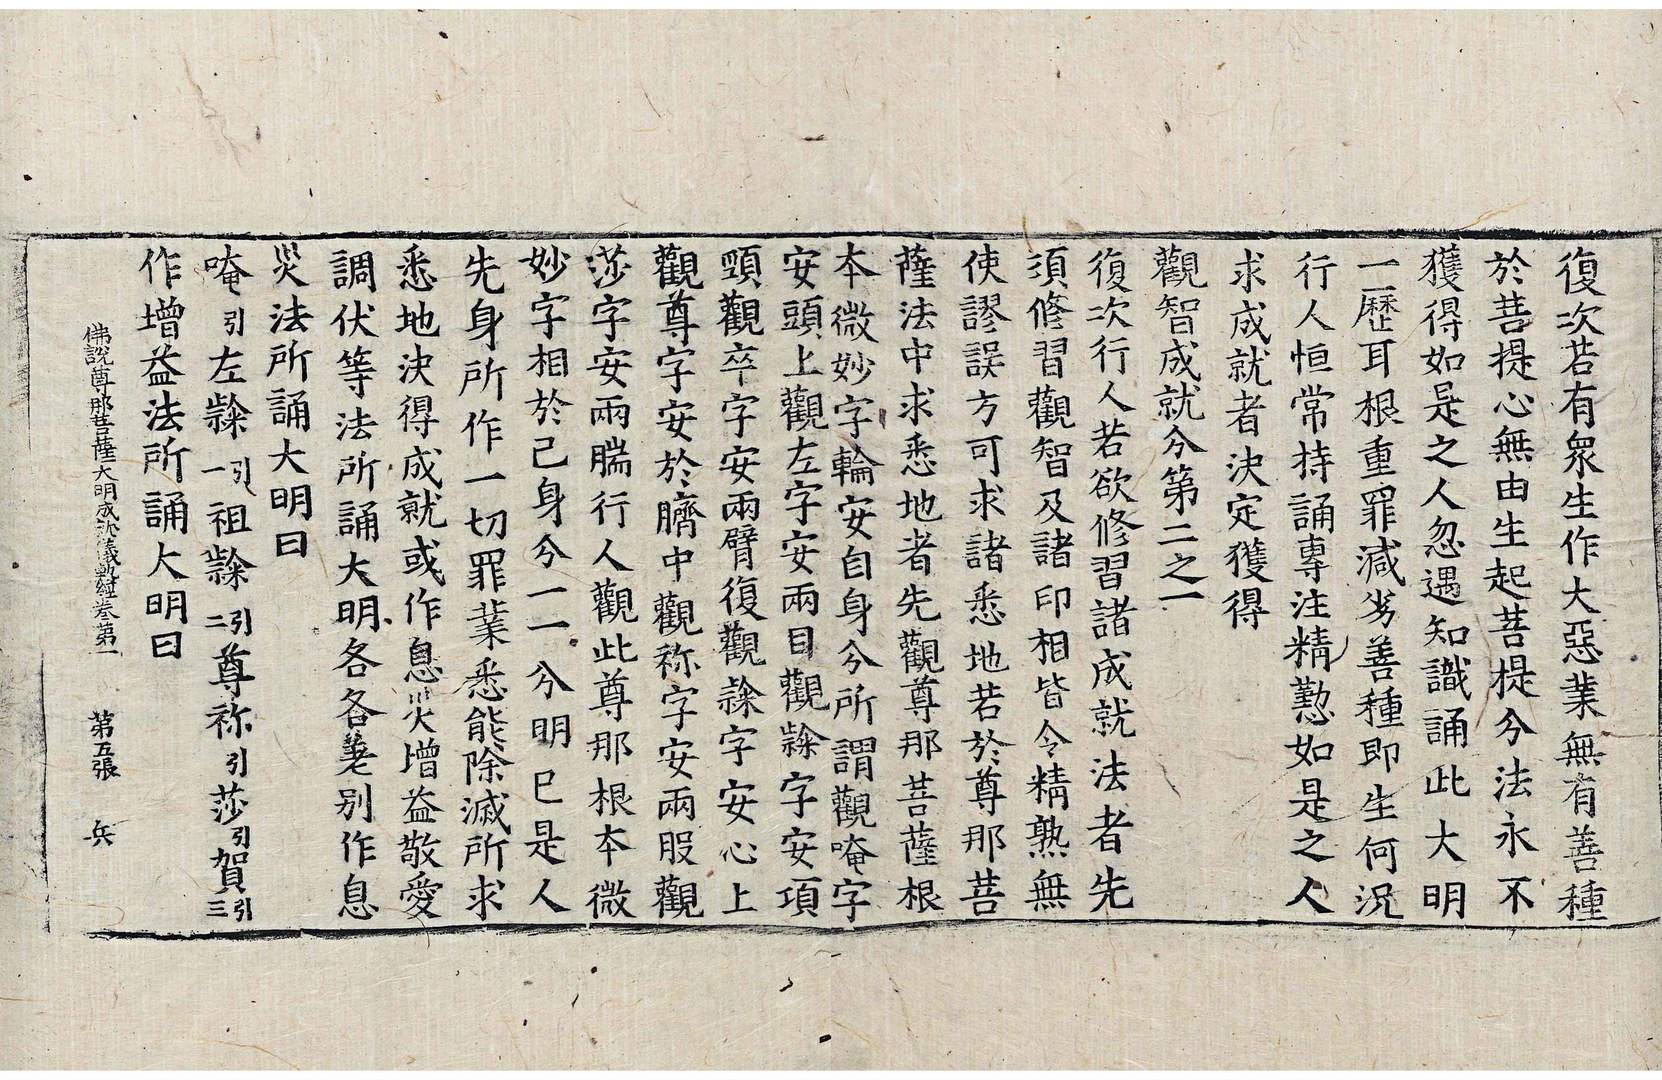 復次若有衆生作大惡業無有善種
於菩提心無由生起菩提分法永不
獲得如是之人忽遇知識誦此大明
一歷耳根重罪減劣善種即生何況
行人恒常持誦專注精懃如是之人
求成就者決定獲得
觀智成就分第二之一
復次行人若欲修習諸成就法者先
須修習觀智及諸印相皆令精熟無
使謬誤方可求諸悉地若於尊那菩
薩法中求悉地者先觀尊那菩薩根
本微妙字輪安自身分所謂觀唵字
安頭上觀左字安兩目觀隸字安項
頸觀卒字安兩臂復觀隸字安心上
觀尊字安於臍中觀祢字安兩股觀
莎字安兩腨行人觀此尊那根本微
妙字相於己身分一一分明已是人
先身所作一切罪業悉能除滅所求
悉地決得成就或作息災增益敬愛
調伏等法所誦大明各各差別作息
災法所誦大明曰
唵引左隸一引祖隸二引尊祢引莎引賀三引
作增益法所誦大明曰
佛說尊那菩薩大明成就儀軌經卷第一　第五張　兵